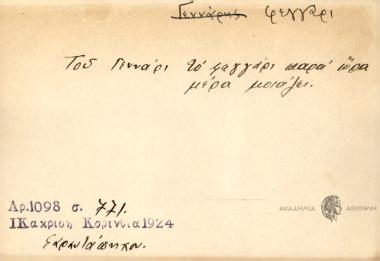 Γεννάρης φεγγάρι
Τοῦ Γεννάρι τό φεγγάρι παρά ὥρα
μέρα μοιάζει.
Αρ.1098 σ. 771.
ΙΚακριση Κορινθία 1924
Σαραντάπηχον.
ΑΚΑΔΗΜΙΑ ΑΘΗΝΩΝ